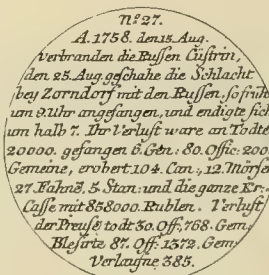 N.º 27.
A. 1758. den 15. Aug.
verbranden die Russen Cüstrin,
den 25. Aug. geschahe die Schlacht
bey Zorndorf mit den Russen, so früh
um 9. Uhr angefangen, und endigte sich
um halb 7. Ihr Verlust ware an Todte
20000. gefangen 6. Gen: 80. Offic: 200
Gemeine, erobert 104. Can:, 12. Mörse
27. Fahnē, 5. Stan: und die ganze Kr:
Casse mit 858000. Rublen. Verlust
der Preuß: todt 30. Off: 768. Gem:
Blesirte 87. Off: 1372. Gem:
Verlaufne 385.